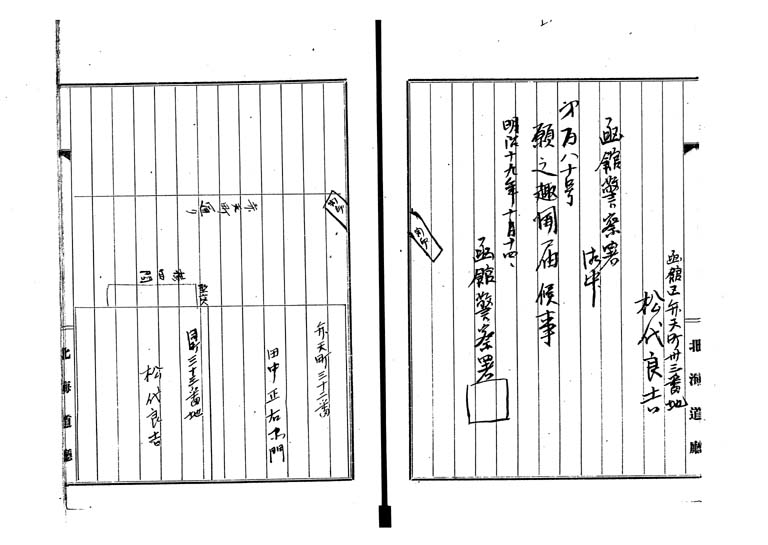 函館区弁天町卅三番地
松代良吉
函館警察署
御中
第百八十号
願之趣聞届候事
明治十九年十月十四、
函館警察署
北海道廳
弁天町通り
弁天町三十三番
田中正右衛門
同町三十三番地
松代良吉
北海道廳